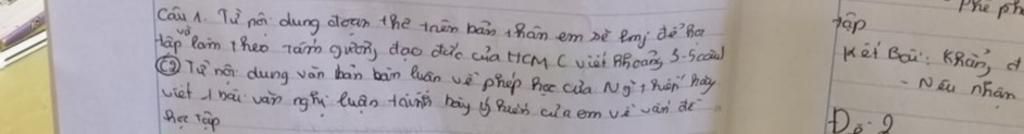 Câu 1. Từ nội dung đoạn thơ trên bản thân em sẽ làm gì để học
tập và làm theo tấm gương đạo đức của HCM (viết khoảng 3-5 câu)
C2 Từ nội dung văn bản bàn luận về phép học của Ng~ Thiếp hãy
viết 1 bài văn nghị luận trình bày ý kiến của em về vấn đề
học tập
tập
Kết Bài: Khẳng đ
- Nêu nhận
Đề 2